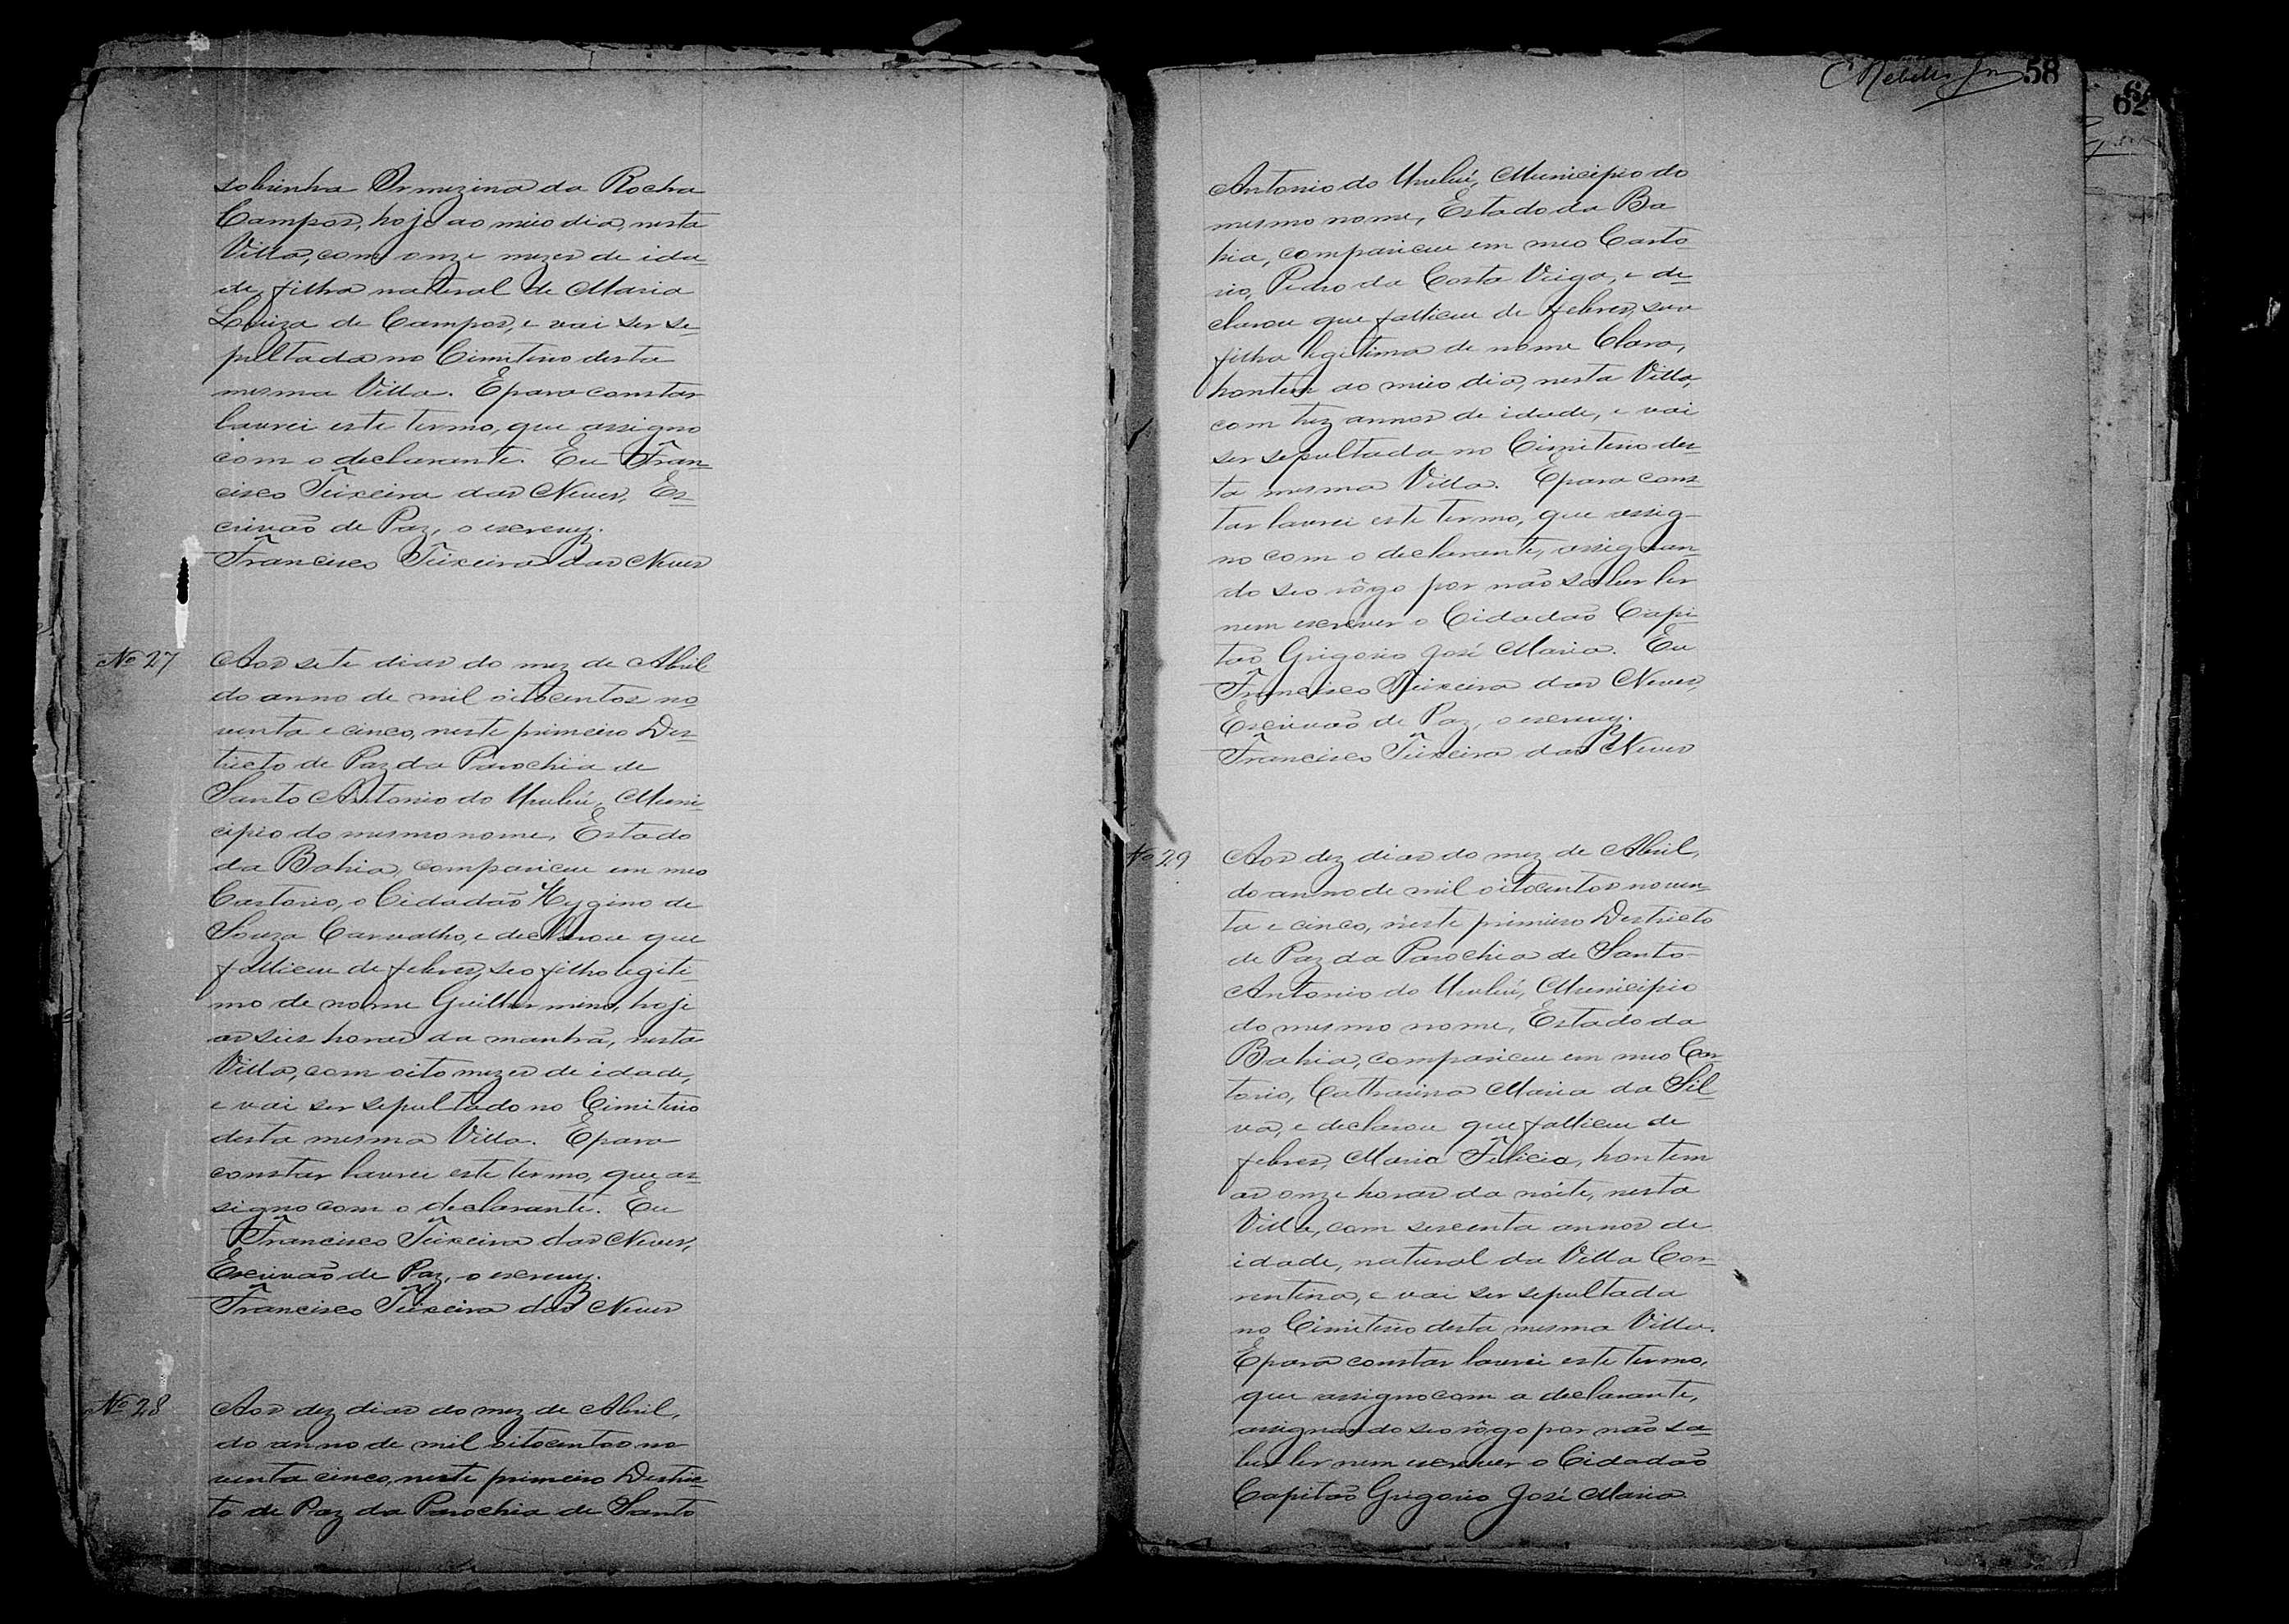 sobrinha Ormezina da Rocha
Campos, hoje ao meio dia, nesta
Villa, com onze mezes de ida-
de, filha natural de Maria
Luiza de Campos, e vai ser se-
pultada no Cimiterio desta
mesma Villa. E para constar
lavrei este termo, que assigno
com o declarante. Eu Fran-
cisco Teixeira das Neves, Es-
crivão de Paz, o escrevy.
Francisco Teixeira das Neves
Nº 27
Aos sete dias do mez de Abril
do anno de mil oitocentos no-
venta e cinco, neste primeiro Des-
tricto de Paz da Parochia de
Santo Antonio do Urubú, Muni-
cipio do mesmo nome, Estado
da Bahia, compareceu em meo
Cartorio, o Cidadão Hygino de
Souza Carvalho, e declarou que
falleceu de febres, seo filho legiti-
mo de nome Guilhermino, hoje
as seis horas da manhã, nesta
Villa, com oito mezes de idade,
e vai ser sepultado no Cimiterio
desta mesma Villa. E para
constar lavrei este termo, que as-
signo com o declarante. Eu
Francisco Teixeira das Neves,
Escrivão de Paz, o escrevy.
Francisco Teixeira das Neves
Nº 28
Aos dez dias do mez de Abril,
do anno de mil oitocentos no-
venta cinco, neste primeiro Destric-
to de Paz da Parochia de Santo
58
62
Antonio do Urubú, Municipio do
mesmo nome, Estado da Ba-
hia, compareceu em meo Carto-
rio, Pedro da Costa Veiga, e de-
clarou que falleceu de febres, sua
filha legitima de nome Clara,
hontem ao meio dia, nesta Villa,
com trez annos de idade, e vai
ser sepultada no Cimiterio des-
ta mesma Villa. E para cons-
tar lavrei este termo, que assig-
no com o declarante, assignan-
do seo rôgo por não saber ler
nem escrever o Cidadão Capi-
tão Grigorio José Maria. Eu
Francisco Teixeira das Neves,
Escrivão de Paz, o escrevy.
Francisco Teixeira das Neves
Nº 29
Aos dez dias do mez de Abril,
do anno de mil oitocentos noven-
ta e cinco, neste primeiro Destricto
de Paz da Parochia de Santo-
Antonio do Urubú, Municipio
do mesmo nome, Estado da
Bahia, compareceu em meo Car-
torio, Catharina Maria da Sil-
va, e declarou que falleceu de
febres, Maria Felicia, hontem
as onze horas da nóite, nesta
Villa, com sescenta annos de
idade, natural da Villa Cor-
rentina, e vai ser sepultada
no Cimiterio desta mesma Villa.
E para constar lavrei este termo,
que assigno com a declarante,
assignando seo rôgo por não sa-
ber ler nem escrever o Cidadão
Capitão Grigorio José Maria.